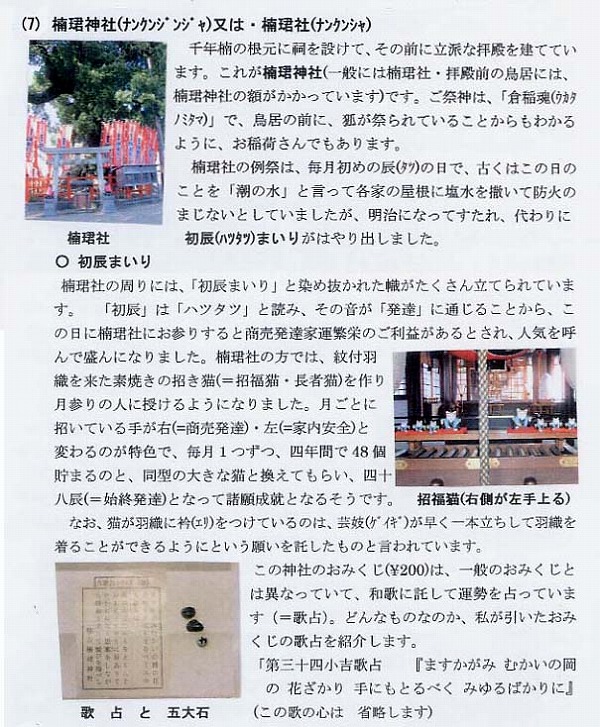 (7) 楠珺神社(ﾅﾝｸﾝｼﾞﾝｼﾞｬ)又は・楠珺社(ﾅﾝｸﾝｼｬ)
千年楠の根元に祠を設けて、その前に立派な拝殿を建ててい
ます。これが楠珺神社(一般には楠珺社・拝殿前の鳥居には、
楠珺神社の額がかかっています)です。ご祭神は、「倉稲魂(ﾜｶﾀ
ﾉﾐﾀﾏ)」で、鳥居の前に、狐が祭られていることからもわかる
ように、お稲荷さんでもあります。
楠珺社の例祭は、毎月初めの辰(ﾀﾂ)の日で、古くはこの日の
ことを「潮の水」と言って各家の屋根に塩水を撒いて防火の
まじないとしていましたが、明治になってすたれ、代わりに
楠珺社
初辰(ﾊﾂﾀﾂ)まいりがはやり出しました。
〇 初辰まいり
楠珺社の周りには、「初辰まいり」と染め抜かれた幟がたくさん立てられていま
す。 「初辰」は「ハツタツ」と読み、その音が「発達」に通じることから、こ
の日に楠珺社にお参りすると商売発達家運繁栄のご利益があるとされ、人気を呼
んで盛んになりました。楠珺社の方では、紋付羽
織を来た素焼きの招き猫(＝招福猫・長者猫)を作り
月参りの人に授けるようになりました。月ごとに
招いている手が右(=商売発達)・左(=家内安全)と
変わるのが特色で、毎月１つずつ、四年間で 48 個
貯まるのと、同型の大きな猫と換えてもらい、四十
八辰(＝始終発達)となって諸願成就となるそうです。
招福猫(右側が左手上る)
なお、猫が羽織に衿(ｴﾘ)をつけているのは、芸妓(ｹﾞｲｷﾞ)が早く一本立ちして羽織を
着ることができるようにという願いを託したものと言われています。
この神社のおみくじ(¥200)は、一般のおみくじと
は異なっていて、和歌に託して運勢を占っていま
す（＝歌占)。どんなものなのか、私が引いたおみ
くじの歌占を紹介します。
「第三十四小吉歌占 『ますかがみ むかいの岡
の 花ざかり 手にもとるべく みゆるばかりに』
(この歌の心は 省略します)
歌 占 と 五大石